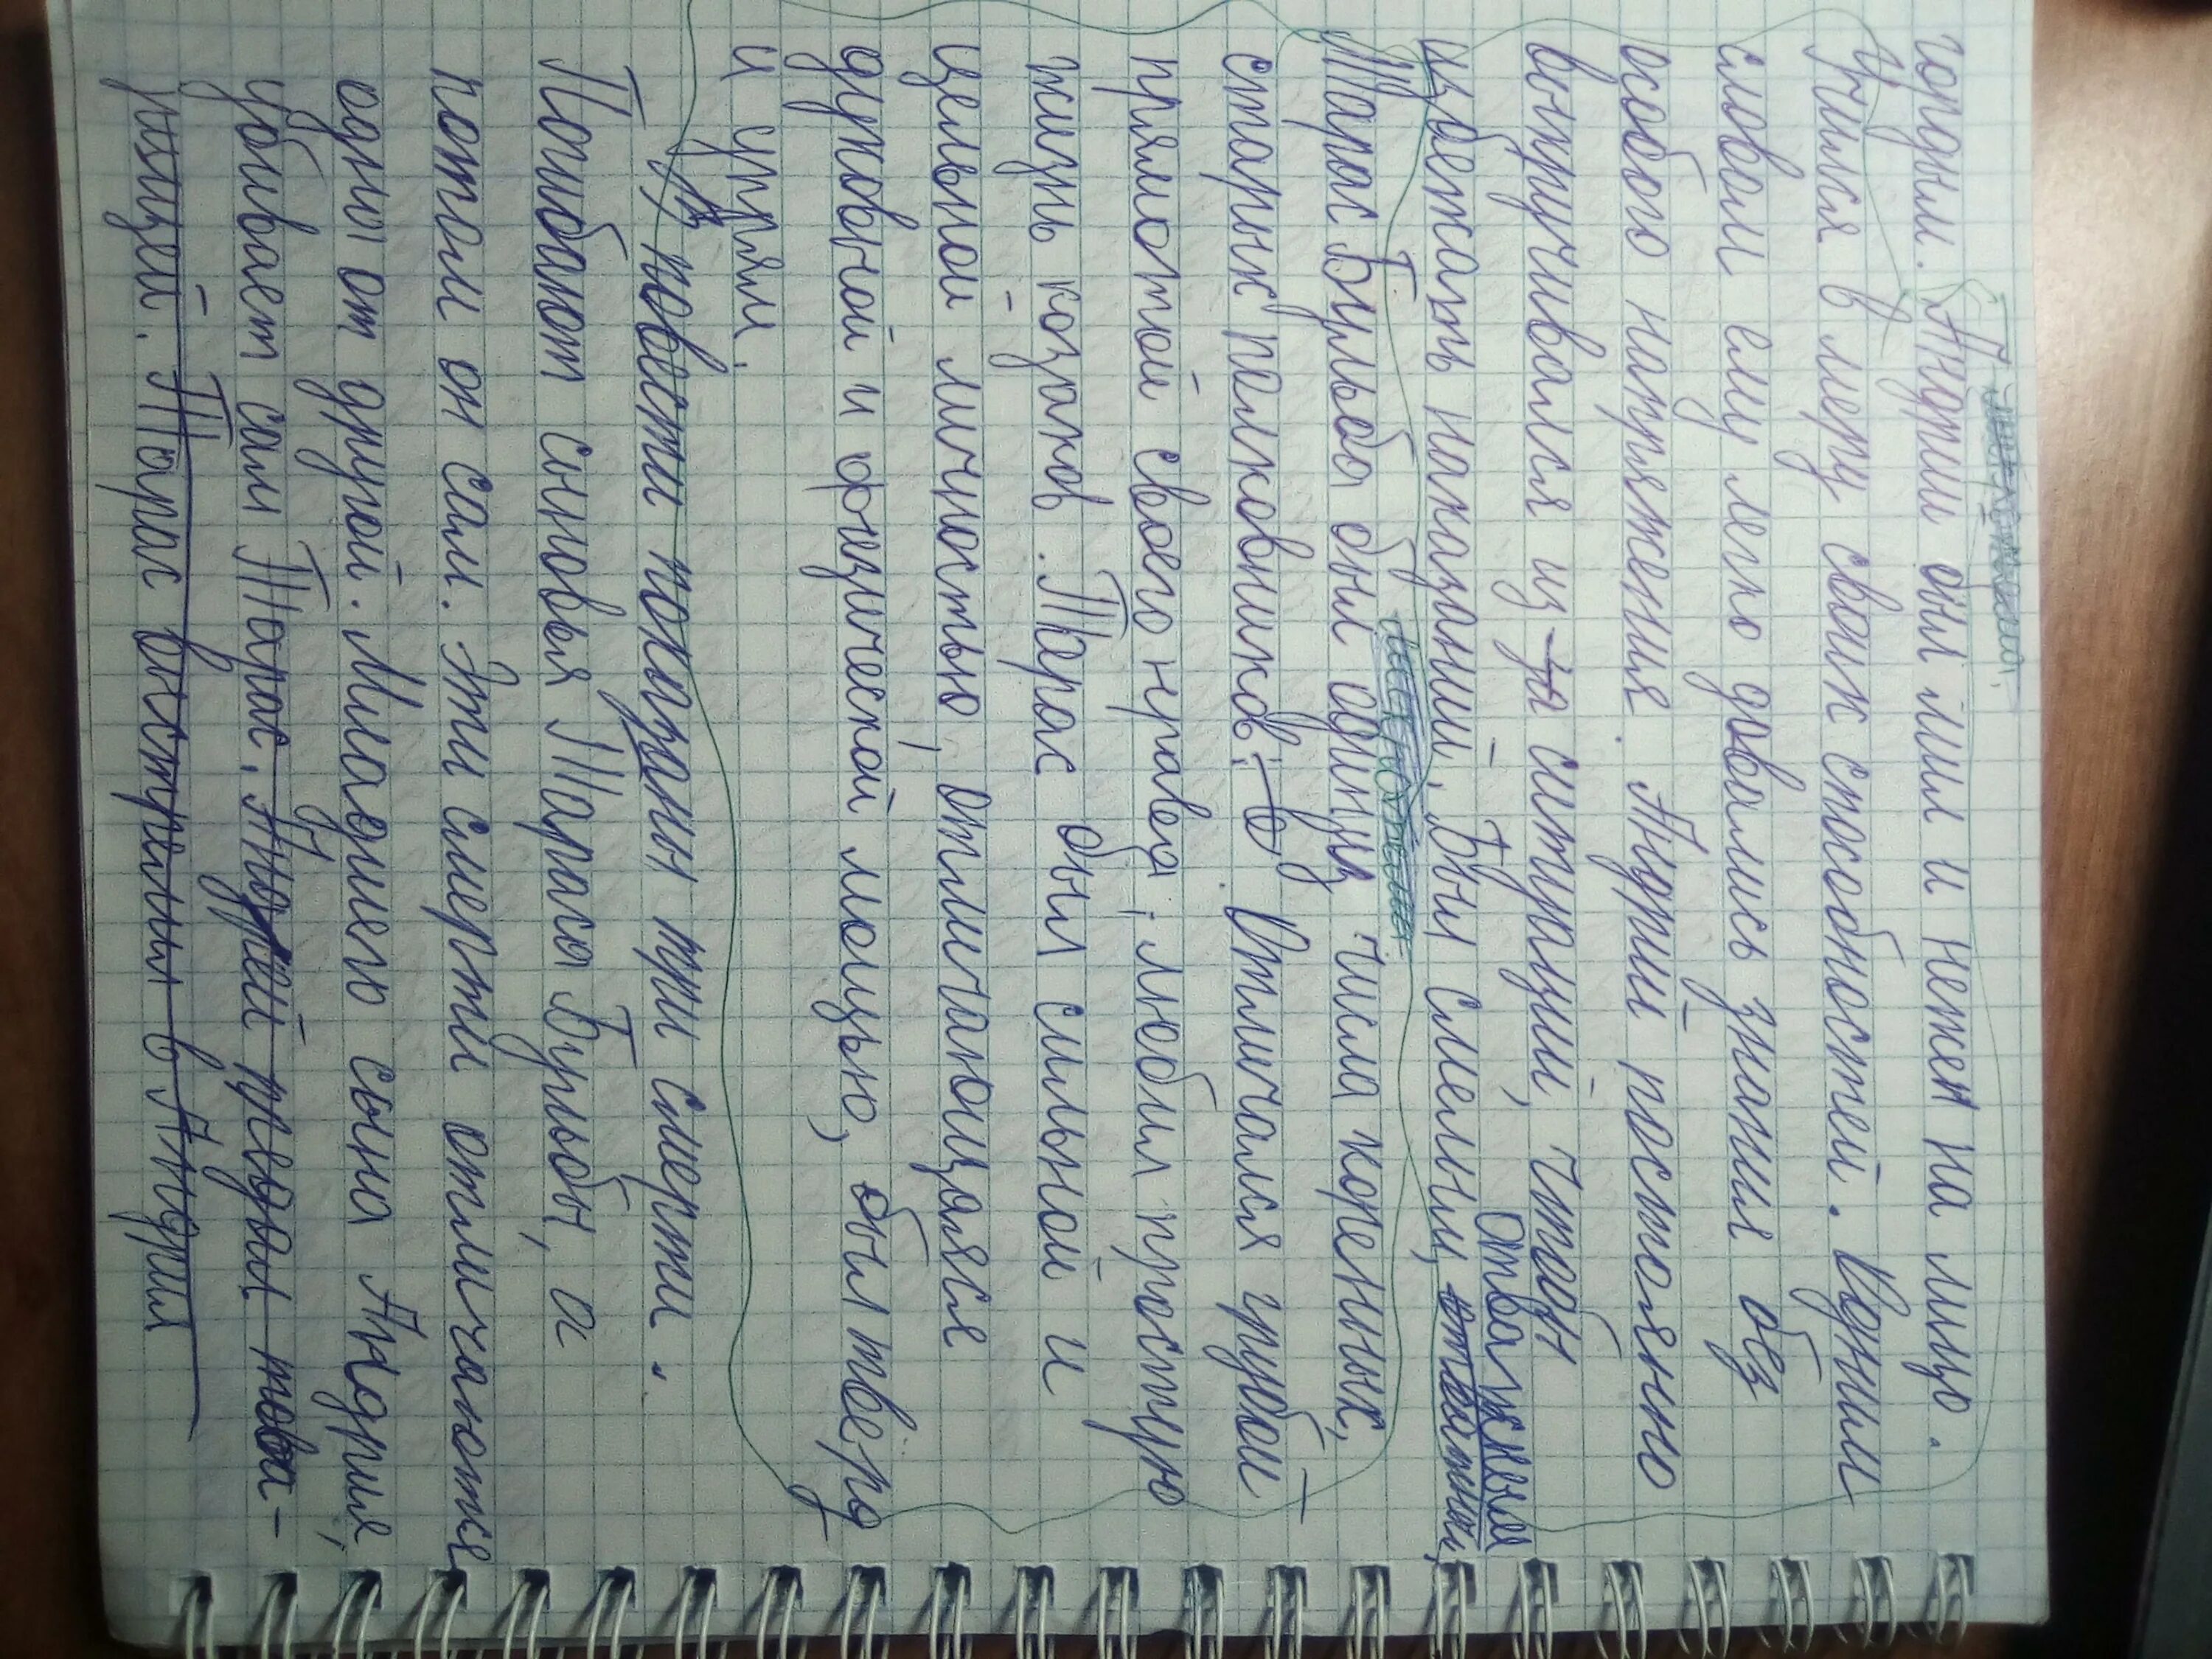 гордым. Андрий был мил и нежен на лицо.
Учился в меру своих способностей. Одним
словом ему легко довались знания без
особого напряжения. Андрий постоянно
выпручивался из-за ситуаций, чтобы
избежать наказаний. Был смелым, отважным
Тарас Бульба был одним из числа коренных,
старых полковников. О Отличался грубой
прямотой своего нрава, любил простую
жизнь козаков. Тарас был сильной и
цельной личностью, отличающаяся
духовной и физической мощью, был твёрд
и упрям.
В повести показаны три смерти.
Погибают сыновья Тараса Бульбы, а
потом он сам. Эти смерти отличаются
одна от другой. Младшего сына Андрия,
убивает сам Тарас. Андрей предал това-
рищей. Тарас выстрелил в Андрия